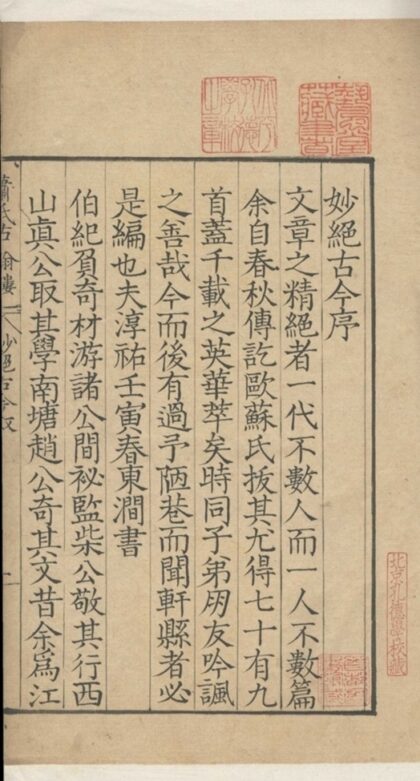 妙絕古今序
文章之精絕者一代不數人而一人不數篇
余自春秋傳訖歐蘇氏拔其尤得七十有九
首蓋千載之英華萃矣時同子弟朋友吟諷
之善哉今而後有過予陋巷而聞軒縣者必
是編也夫淳祐壬寅春東澗書
伯紀負奇材游諸公間祕監柴公敬其行西
山真公取其學南塘趙公奇其文昔余為江
蕭氏古翰樓
妙絕古今叙
一
北京孔德學校藏